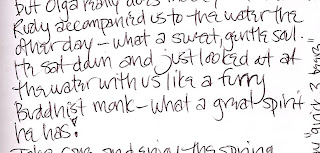 but Olga really does
Rudy accompanied us to the water the
other day – what a sweet, gentle soul.
He sat down and just looked at at
the water with us like a furry
Buddhist monk – what a great spirit
he has!
Take care and enjoy the spring